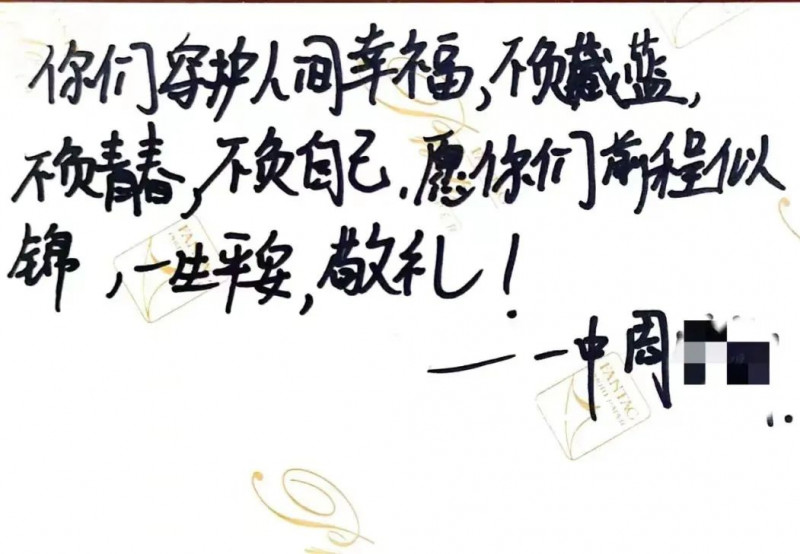 你们守护人间幸福,不负藏蓝,
不负青春,不负自己.愿你们前程似
锦,一生平安,敬礼!
——一中周
FANTAG
FANTAG